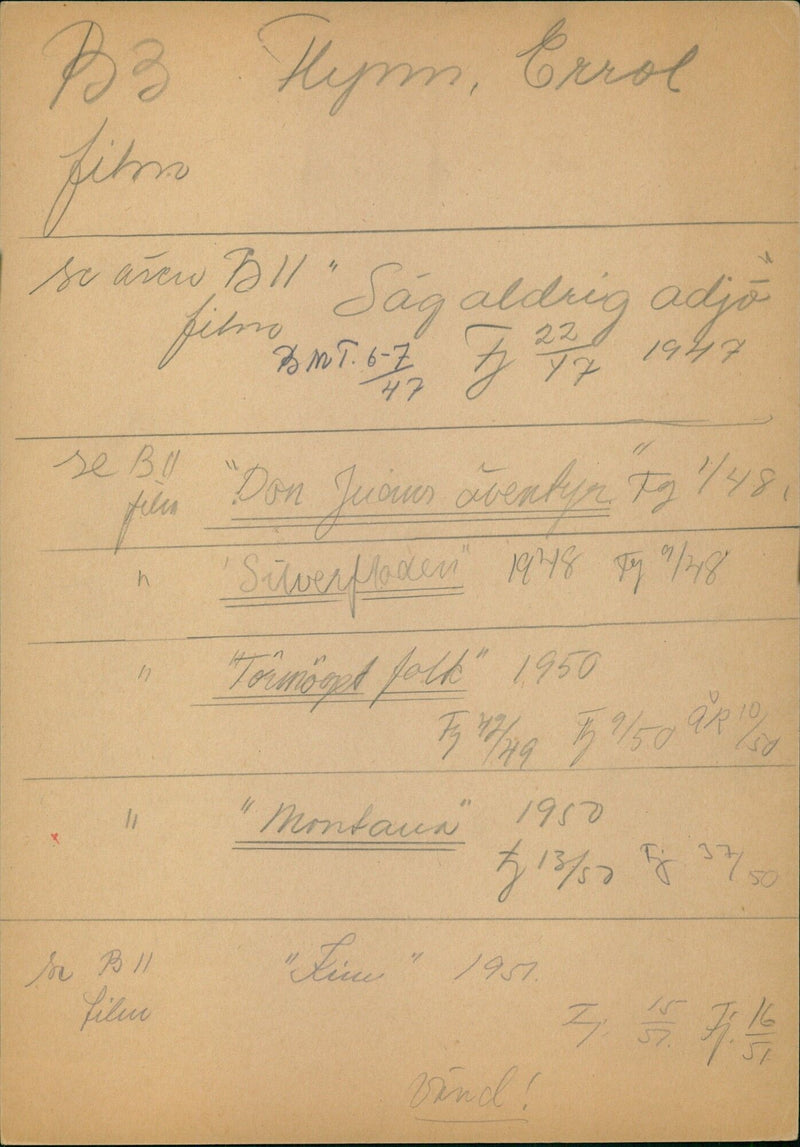 B3 Flynn, Errol
film
se även B11 "Säg aldrig adjö"
film
BMT. 6-7/47 Fj 22/47 1947
se B11 "Don Juans äventyr" Fj 1/48
film
" "Silverfloden" 1948 Fj 9/48
" "Förmöget folk" 1950
Fj 42/49 Fj 9/50 ÅR 10/50
" "Montana" 1950
Fj 13/50 Fj 37/50
se B11 "Kim" 1951.
film
Fj. 15/51. Fj. 16/51.
Vänd!